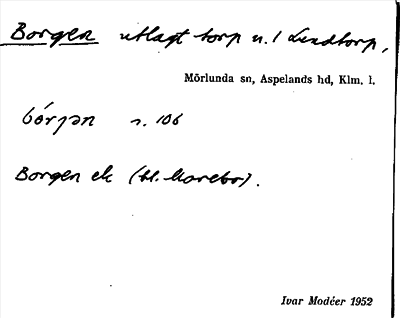 Borgen utlagt torp u. / Lundtorp,
Mörlunda sn, Aspelands hd, Klm. l.
bórȷən s. 106
Borgen ek (bl. Morebo).
Ivar Modéer 1952